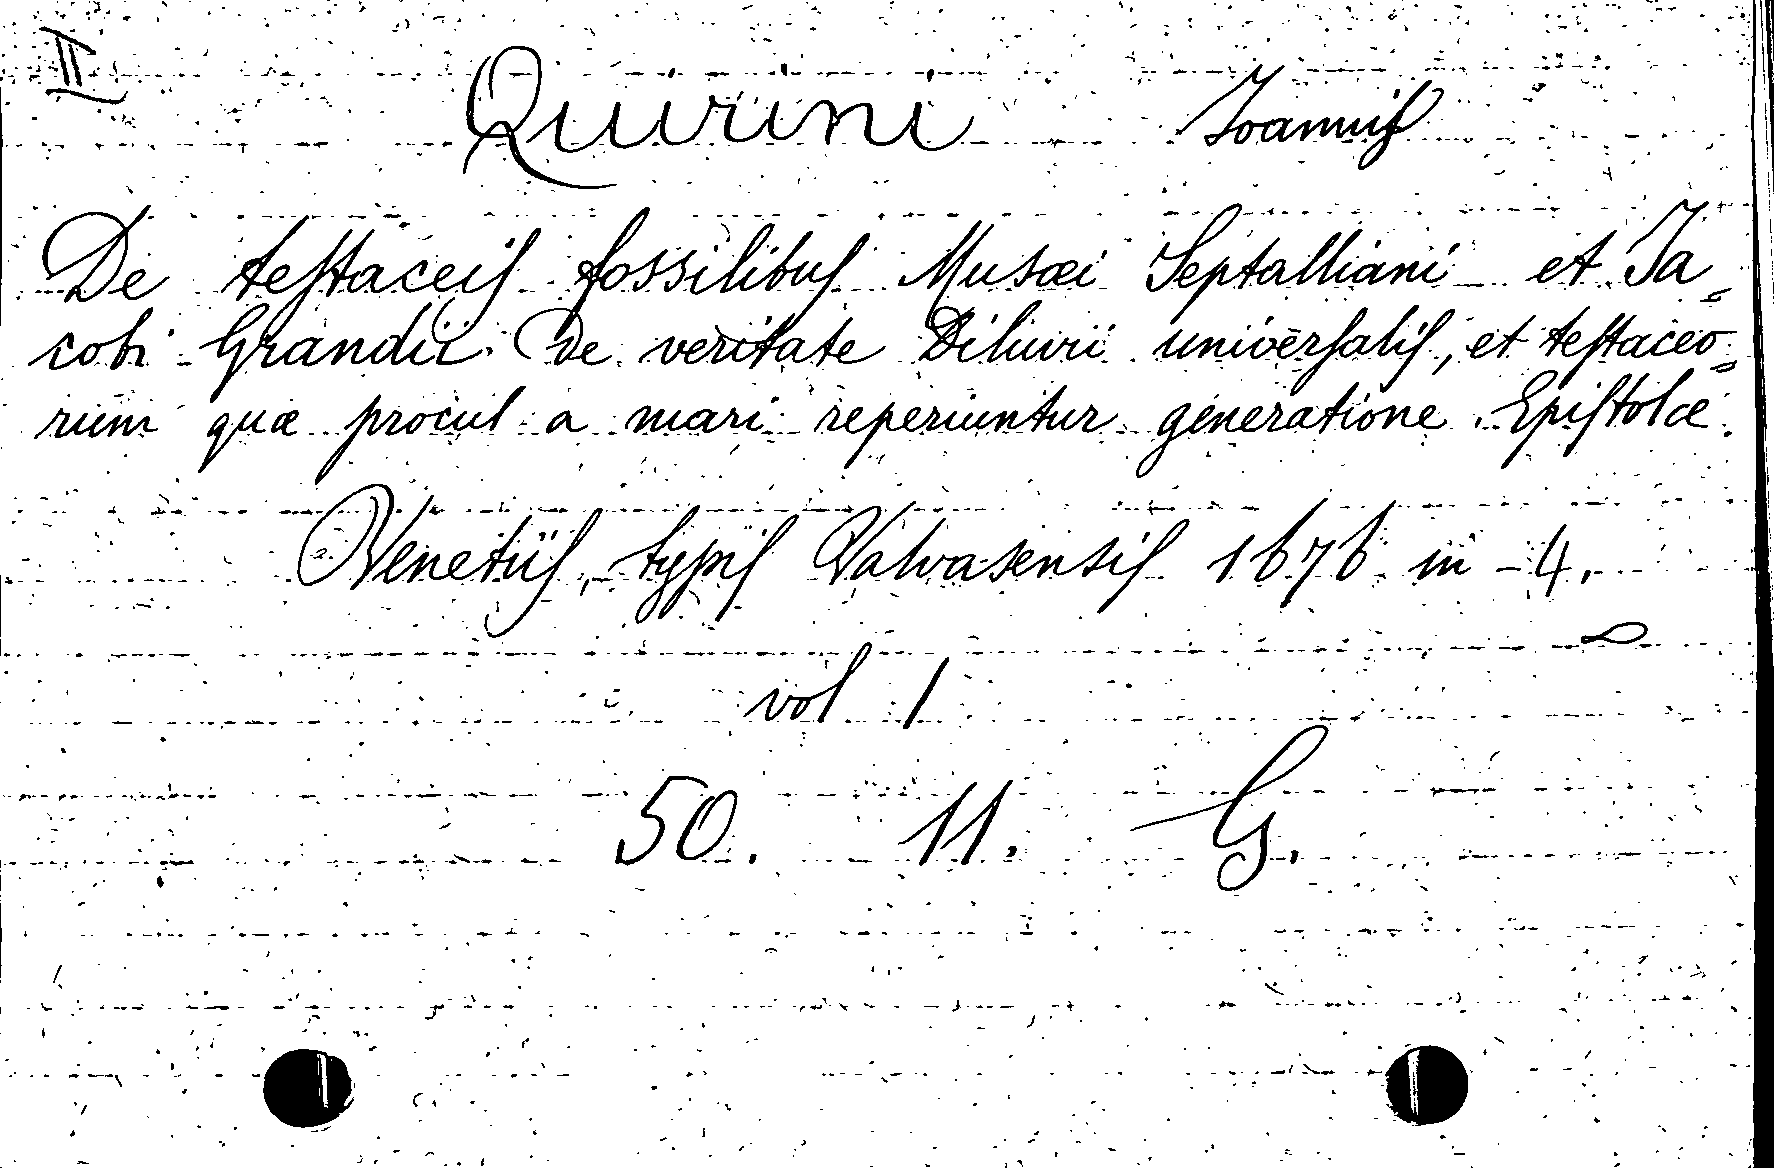 II
Quirini Joannis
De testaceis fossilibus Musæi Septalliani et Ja=
cobi Grandii De veritate Diluvii universalis, et testaceo=
rum quæ procul a mari reperiuntur generatione. Epistolæ.
Venetiis, typis Valvasensis 1676 in - 4.
vol 1
50. 11. G.